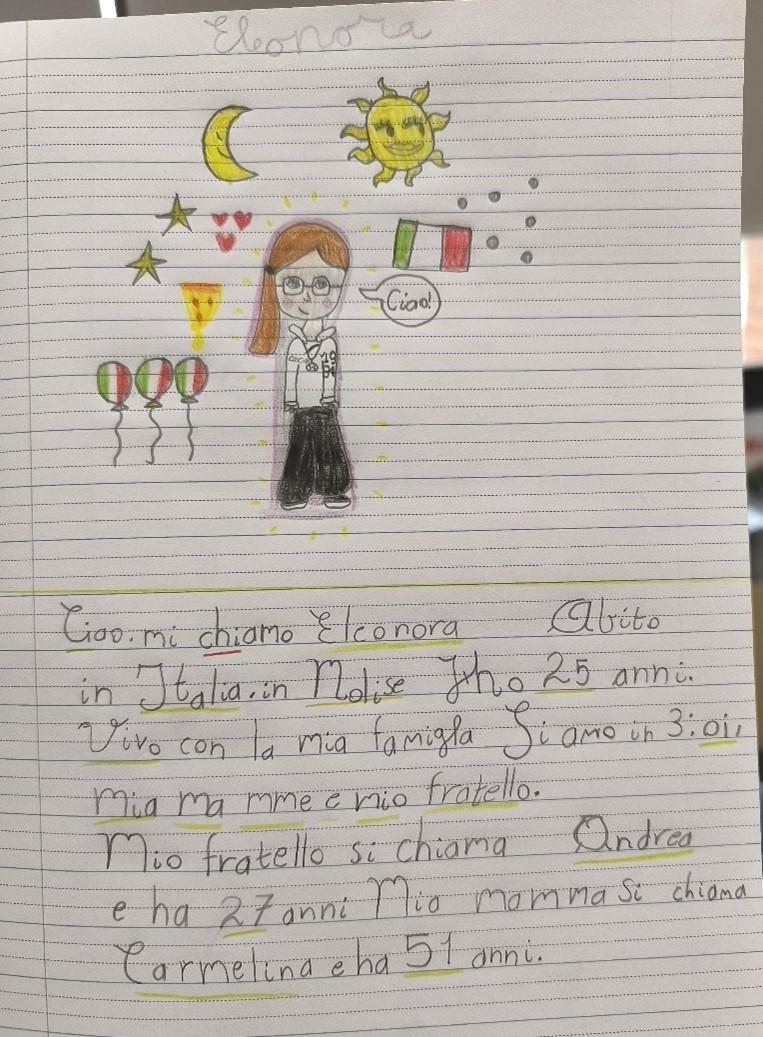 Eleonora
Ciao!
19
Ciao. mi chiamo Eleonora Abito
in Italia. in Molise Ho 25 anni.
Vivo con la mia famigla Siamo in 3: oi,
mia ma mme e mio fratello.
Mio fratello si chiama Andrea
e ha 27 anni Mia mamma si chiama
Carmelina e ha 51 anni.